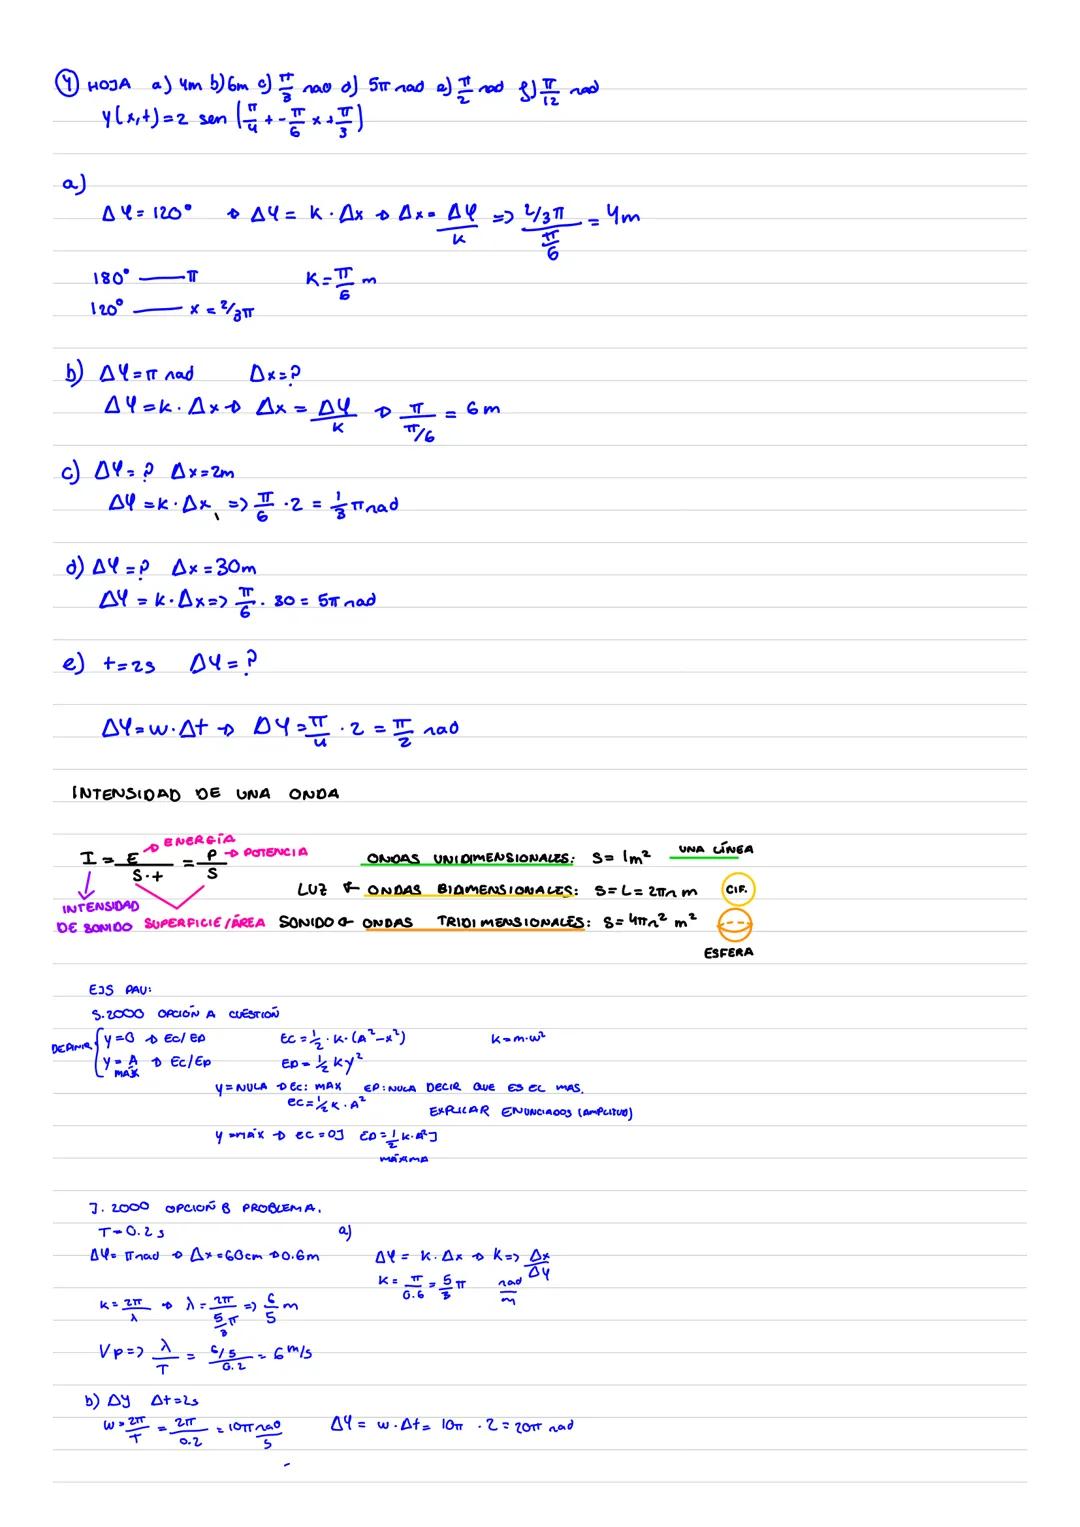 ④ HOJA a) 4m b) 6m c) π/3 rad d) 5π rad e) π/2 rad f) π/12 rad
y(x,t)=2 sen (π/4 t - π/6 x + π/3)
a)
Δφ=120° → Δφ = K·Δx → Δx = Δφ/K => (2/3π)/(π/6) = 4m
180° — π K=π/6 m
120° — x = 2/3π
b) Δφ=π rad Δx=?
Δφ=K·Δx → Δx = Δφ/K → π/(π/6) = 6m
c) Δφ=? Δx=2m
Δφ=K·Δx => π/6 · 2 = 1/3 π rad
d) Δφ=? Δx=30m
Δφ = K·Δx => π/6 · 30 = 5π rad
e) t=2s Δφ=?
Δφ=w·Δt → Δφ=π/4 · 2 = π/2 rad
INTENSIDAD DE UNA ONDA
I = E/(S·t) = P/S
→ ENERGÍA
→ POTENCIA
INTENSIDAD DE SONIDO
SUPERFICIE/ÁREA
ONDAS UNIDIMENSIONALES: S= 1m² UNA LÍNEA
LUZ ← ONDAS BIDIMENSIONALES: S=L=2πr m CIF.
SONIDO ← ONDAS TRIDIMENSIONALES: S=4πr² m²
ESFERA
EJS PAU:
S.2000 OPCIÓN A CUESTIÓN
DEFINIR { y=0 → EC/EP EC = 1/2 · K · (A²-x²) K=m·w²
y=A MÁX → EC/EP EP = 1/2 Ky²
y=NULA → EC: MAX EP: NULA DECIR QUE ES EL MAS.
EC=1/2 K·A² EXPLICAR ENUNCIADOS (AMPLITUD)
y=MÁX → EC=0J EP=1/2 K·A² J
MÁXIMA
J. 2000 OPCIÓN B PROBLEMA.
T=0.2s a)
Δφ= π rad → Δx=60cm → 0.6m Δφ = K·Δx → K => Δx/Δφ
K = π/0.6 = 5/3 π rad/m
K = 2π/λ → λ = 2π/(5/3 π) => 6/5 m
Vp => λ/T = (6/5)/0.2 = 6 m/s
b) Δy Δt=2s
w = 2π/T = 2π/0.2 = 10π rad/s Δφ = w·Δt = 10π · 2 = 20π rad